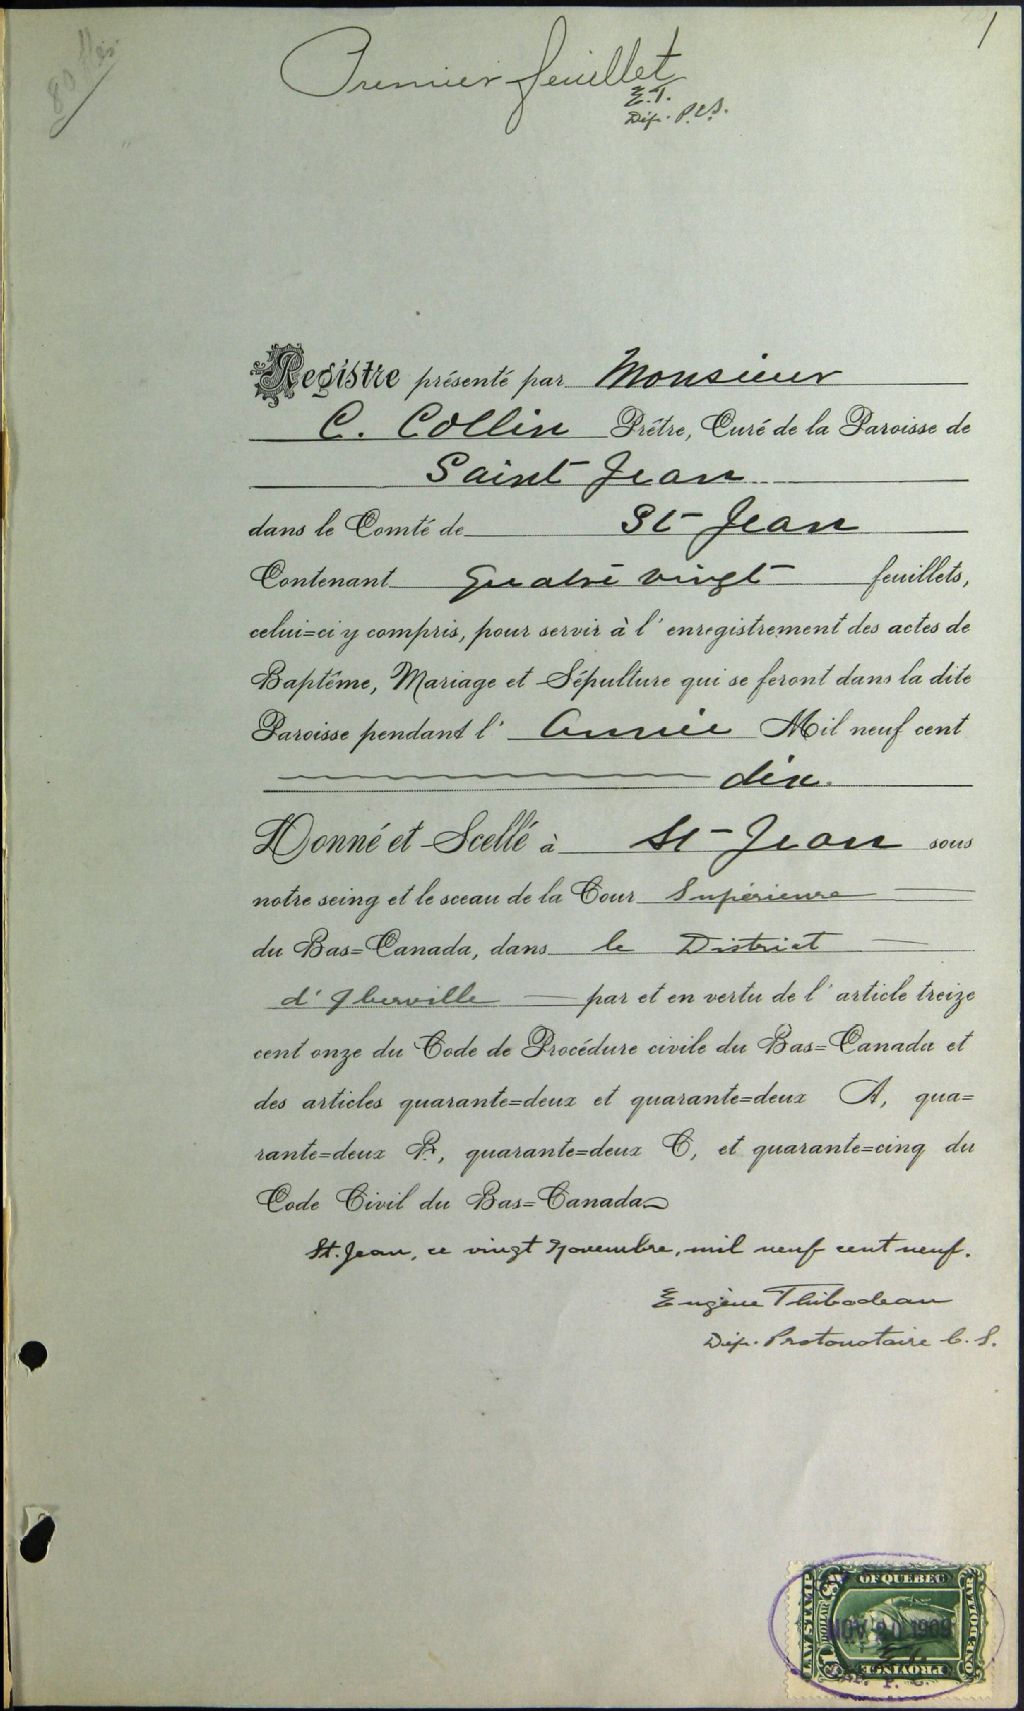 1
80 flts
Premier feuillet
E.T.
Dép. P.C.S.
Registre présenté par Monsieur
C. Collin Prêtre, Curé de la Paroisse de
Saint Jean
dans le Comté de St-Jean
Contenant Quatre vingt feuillets,
celui=ci y compris, pour servir à l'enregistrement des actes de
Baptême, Mariage et Sépulture qui se feront dans la dite
Paroisse pendant l'Année Mil neuf cent
dix.
Donné et Scellé à St-Jean sous
notre seing et le sceau de la Cour Supérieure
du Bas=Canada, dans le District
d'Iberville par et en vertu de l'article treize
cent onze du Code de Procédure civile du Bas=Canada et
des articles quarante=deux et quarante=deux A, qua=
rante=deux B, quarante=deux C, et quarante=cinq du
Code Civil du Bas=Canada
St. Jean, ce vingt Novembre, mil neuf cent neuf.
Eugène Thibodeau
Dép. Protonotaire C. S.
OF QUEBEC
LAW STAMP
DOLLAR
NOV 20 1909
E.T.
PROVINCE
ONE DOLLAR
P. C.